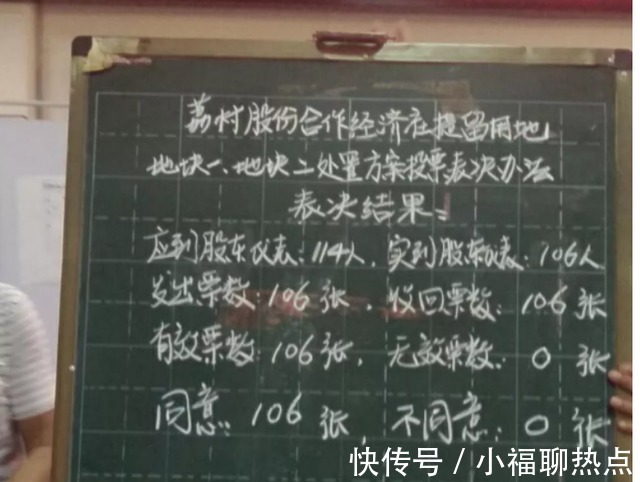 荔村股份合作经济社提留用地
地块一、地块二处置方案投票表决办法
表决结果:
应到股东代表:114人,实到股东代表:106人
发出票数:106张,收回票数:106张
有效票数:106张,无效票数:0张
同意:106张,不同意:0张
快传号/小福聊热点